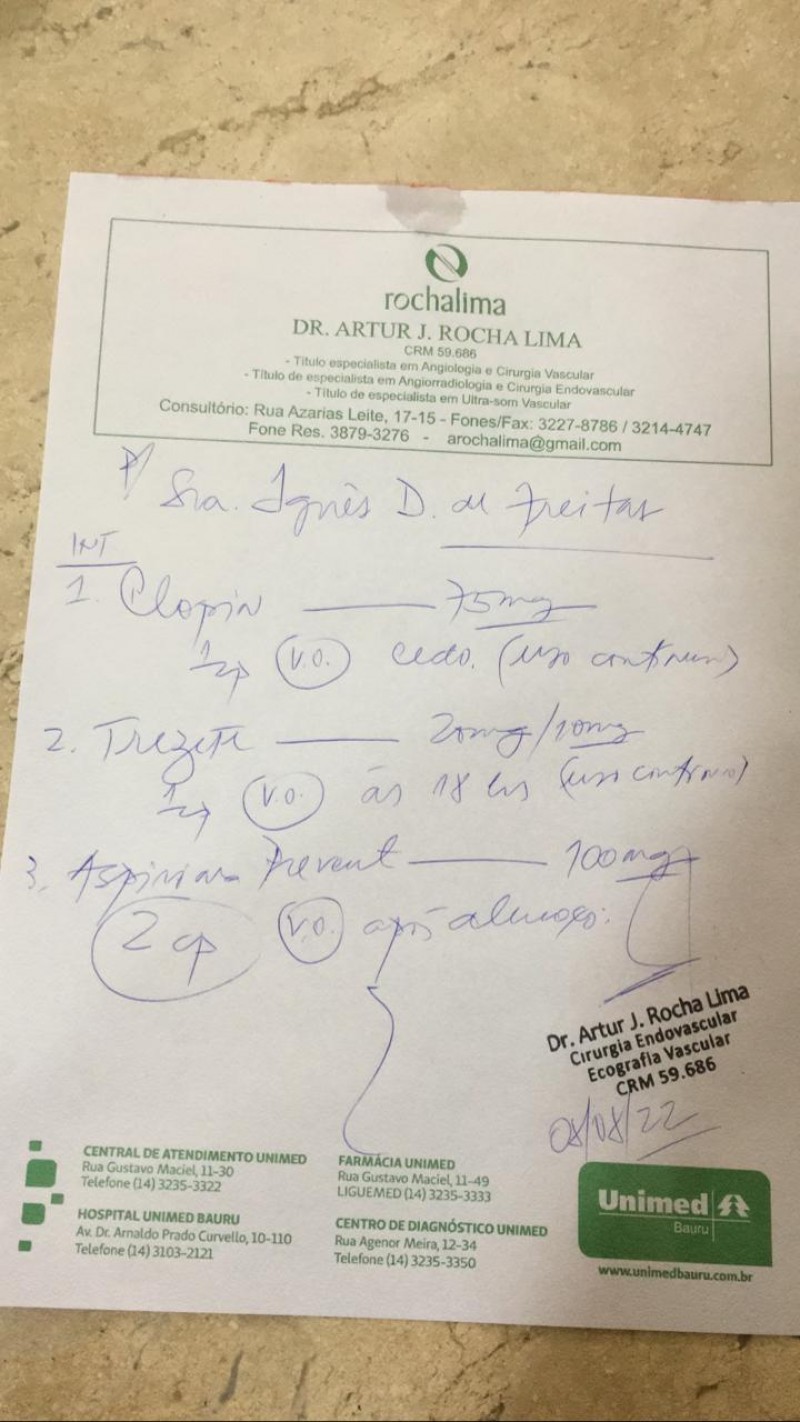 rochalima
DR. ARTUR J. ROCHA LIMA
CRM 59.686
- Título especialista em Angiologia e Cirurgia Vascular
- Título de especialista em Angiorradiologia e Cirurgia Endovascular
- Título de especialista em Ultra-som Vascular
Consultório: Rua Azarias Leite, 17-15 - Fones/Fax: 3227-8786 / 3214-4747
Fone Res. 3879-3276 - arochalima@gmail.com
P/ Sra. Ignês D. de Freitas
INT
1. Clopin 75mg
1 cp V.O. cedo. (uso contínuo)
2. Trezete 20mg/10mg
1 cp V.O. às 18 hs (uso contínuo)
3. Aspirina Prevent 100mg
2 cp V.O. após almoço.
Dr. Artur J. Rocha Lima
Cirurgia Endovascular
Ecografia Vascular
CRM 59.686
08/08/22
CENTRAL DE ATENDIMENTO UNIMED
Rua Gustavo Maciel, 11-30
Telefone (14) 3235-3322
HOSPITAL UNIMED BAURU
Av. Dr. Arnaldo Prado Curvello, 10-110
Telefone (14) 3103-2121
FARMÁCIA UNIMED
Rua Gustavo Maciel, 11-49
LIGUEMED (14) 3235-3333
CENTRO DE DIAGNÓSTICO UNIMED
Rua Agenor Meira, 12-34
Telefone (14) 3235-3350
Unimed
Bauru
www.unimedbauru.com.br